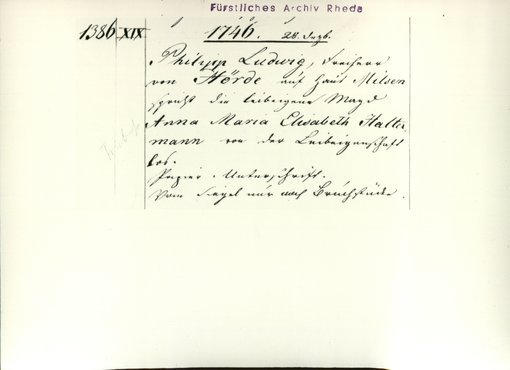 Fürstliches Archiv Rheda
1386 XIX 1746. 28. Dezb.
Philipp Ludwig, Freiherr
von Hörde auf Haus Milsen
spricht die leibeigene Magd
Anna Maria Elisabeth Halter
mann von der Leibeigenschaft
los.
Papier. Unterschrift.
Vom Siegel nur noch Bruchstücke.